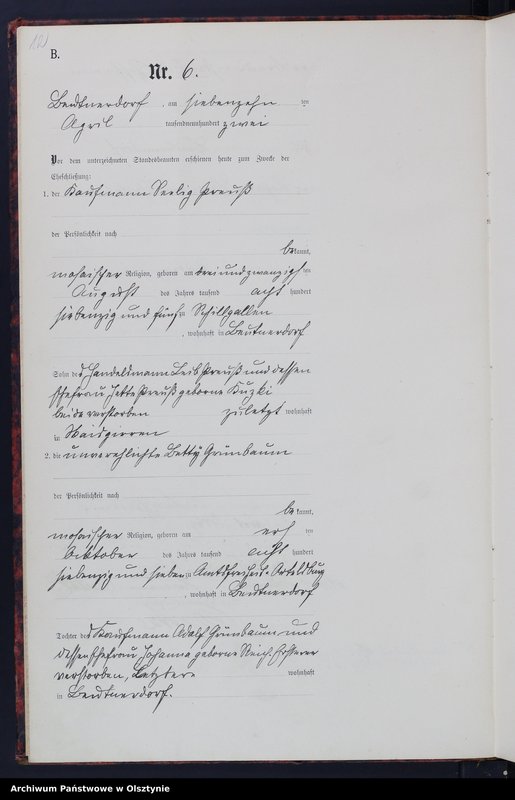 B.
Nr. 6.
Beutnerdorf, am siebenzehn ten
April tausendneunhundert zwei
Vor dem unterzeichneten Standesbeamten erschienen heute zum Zwecke der
Eheschließung:
1. der Kaufmann Seelig Preuß
der Persönlichkeit nach
bekannt,
mosaischer Religion, geboren am dreiundzwanzigsten
August des Jahres tausend acht hundert
siebenzig und fünf zu Schillgallen
, wohnhaft in Beutnerdorf
Sohn des Handelsmann Leib Preuß und dessen
Ehefrau Jette Preuß geborne
beide verstorben zuletzt wohnhaft
in
2. die unverehlichte Betty Grünbaum
der Persönlichkeit nach
bekannt,
mosaischer Religion, geboren am elf ten
Oktober des Jahres tausend acht hundert
siebenzig und sieben zu Amtsfreiheit-Ortelsburg
, wohnhaft in Beutnerdorf
Tochter des Kaufmann Adolf Grünbaum und
dessen Ehefrau Johanna geborne Reich, Ersterer
verstorben, Letztere wohnhaft
in Beutnerdorf.
Archiwum Państwowe w Olsztynie